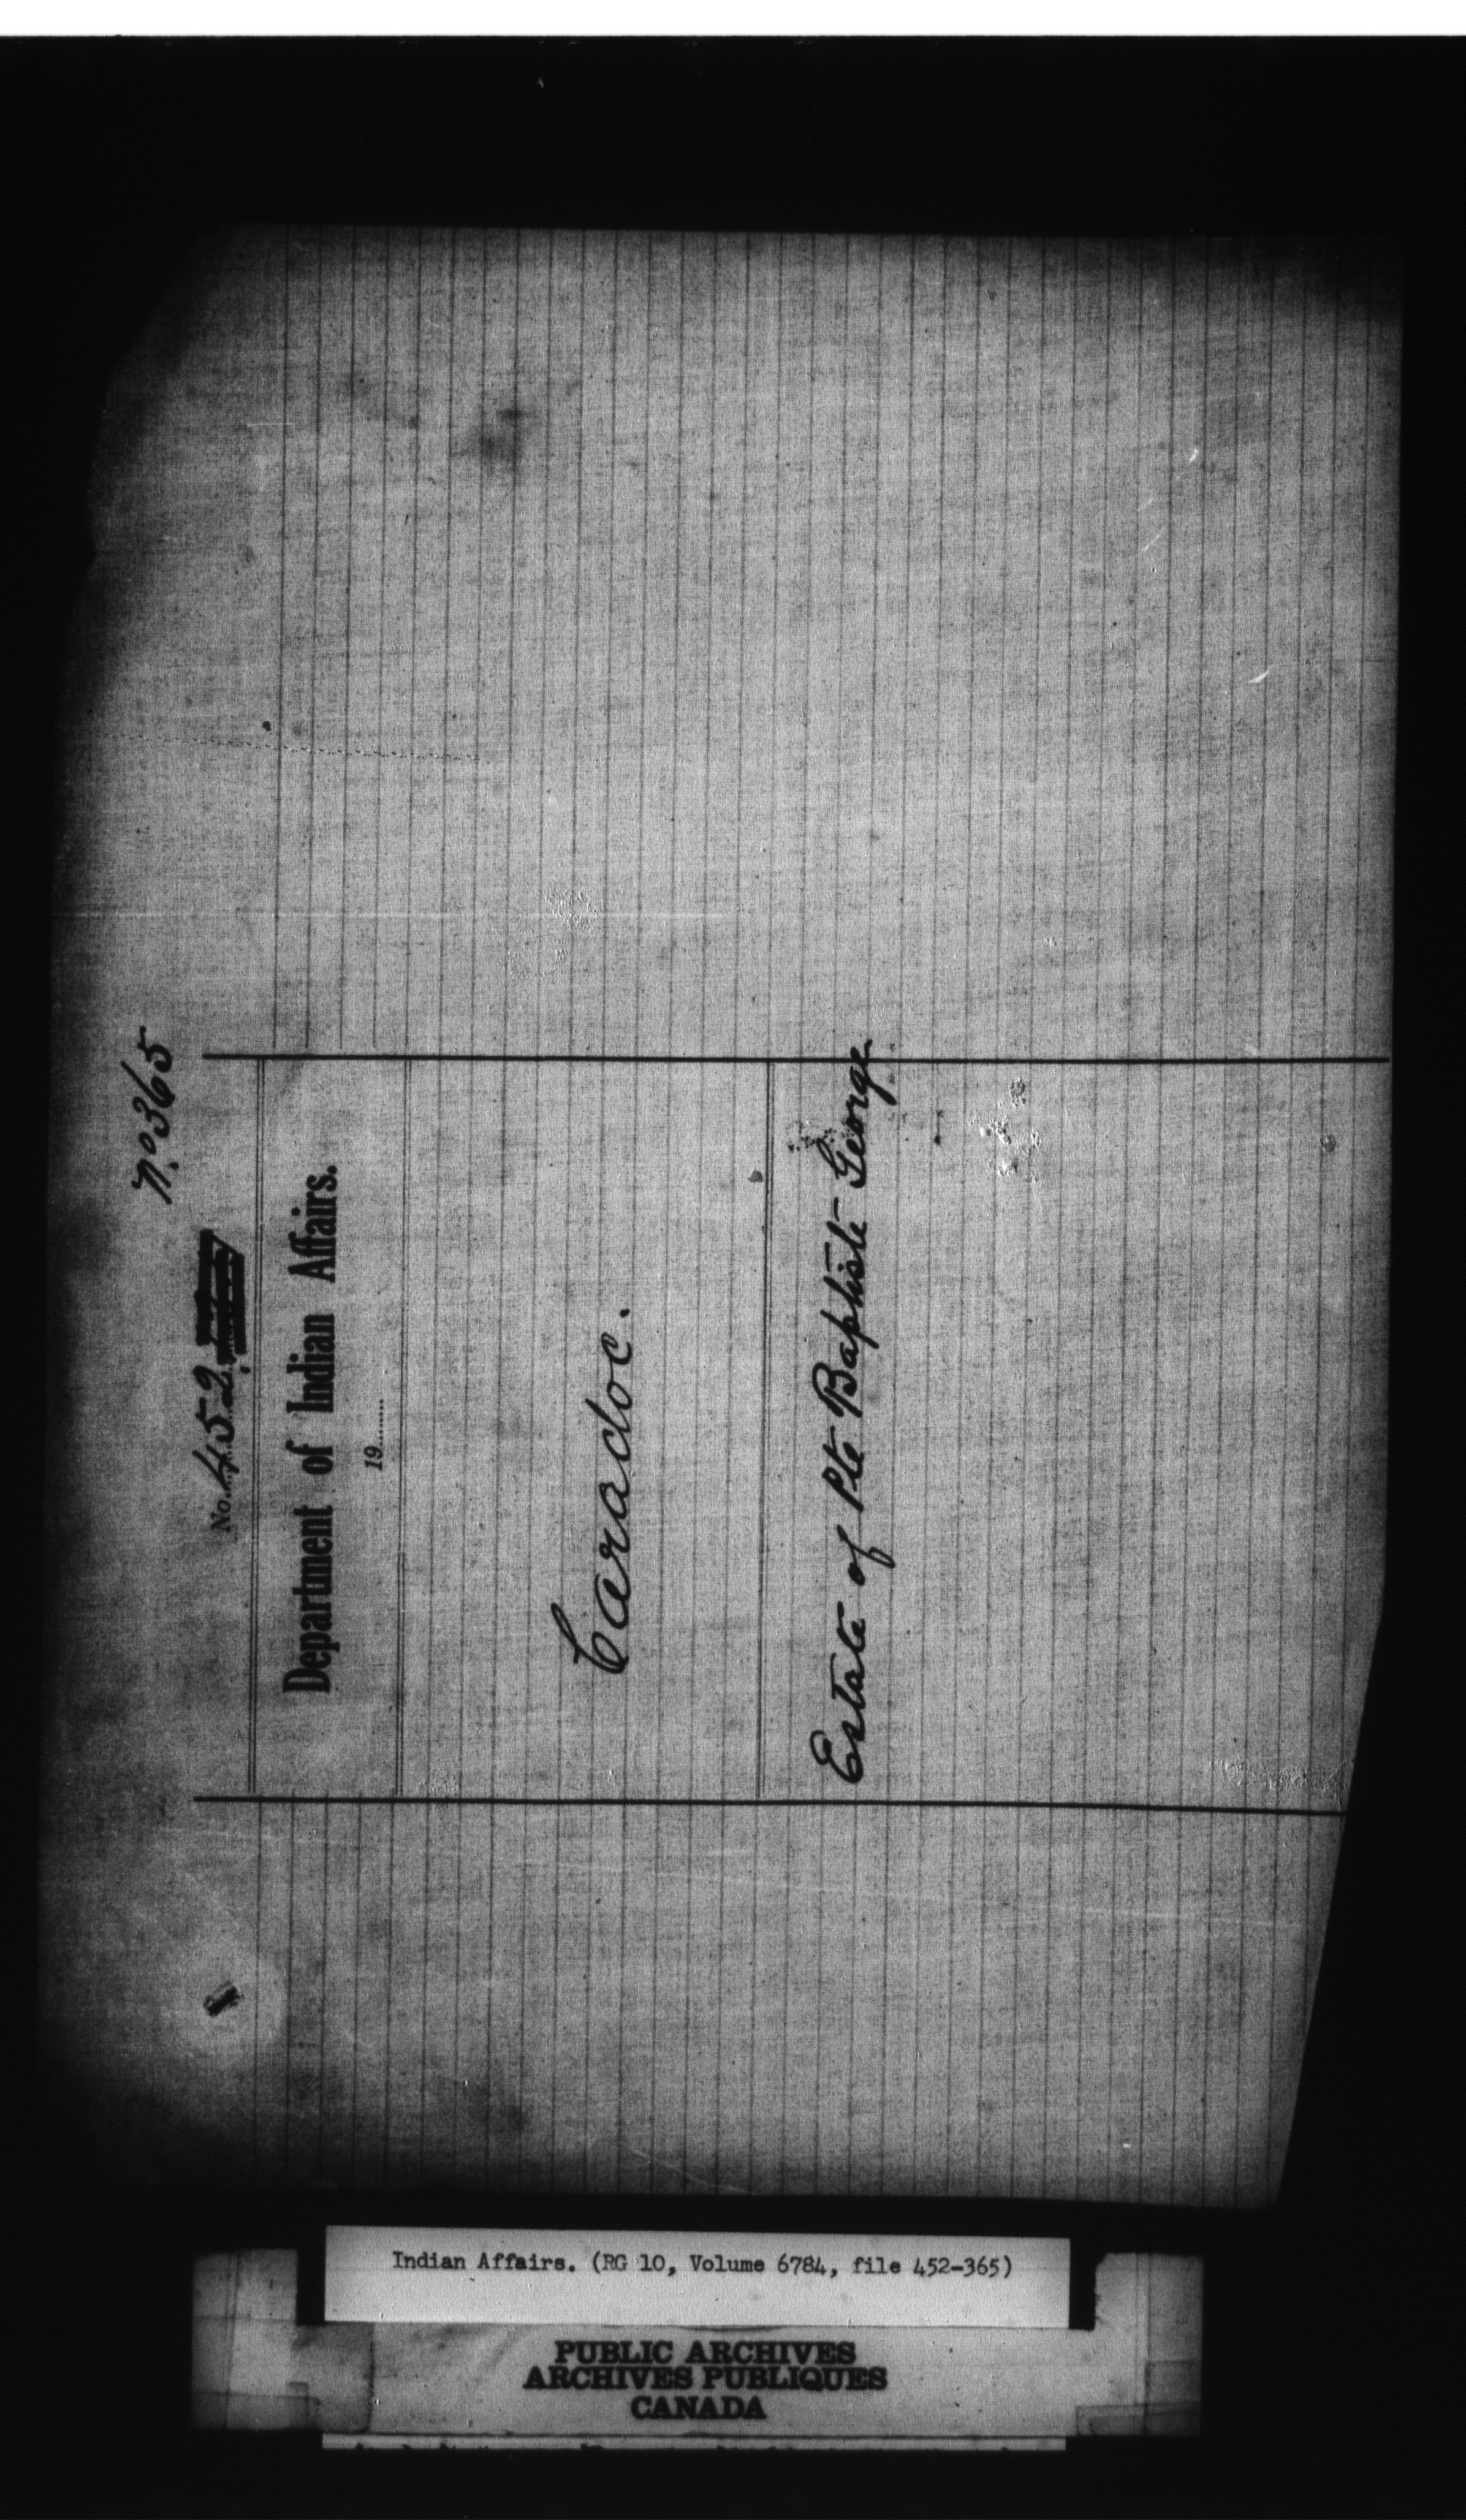 No 365
No. 452
Department of Indian Affairs.
19........
Caradoc.
Estate of Pte Baptiste George
Indian Affairs. (RG 10, Volume 6784, file 452-365)
PUBLIC ARCHIVES
ARCHIVES PUBLIQUES
CANADA